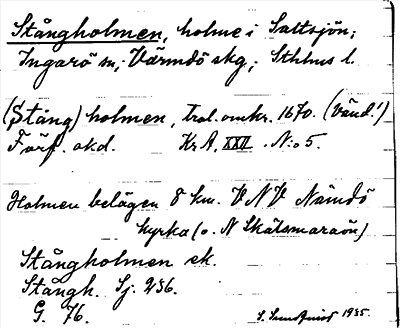 Stångholmen, holme i Saltsjön;
Ingarö sn, Värmdö skg; Sthlms l.
(Stång) holmen, Trol. omkr. 1670. (Vänd!)
Förf. okd. Kr A, XXII. N:o 5.
Holmen belägen 8 km. VNV Nämdö
kyrka (o. N Skälsmaraön)
Stångholmen ek.
Stångh. Sj. 236.
G. 76.
S. Sundqvist 1935.